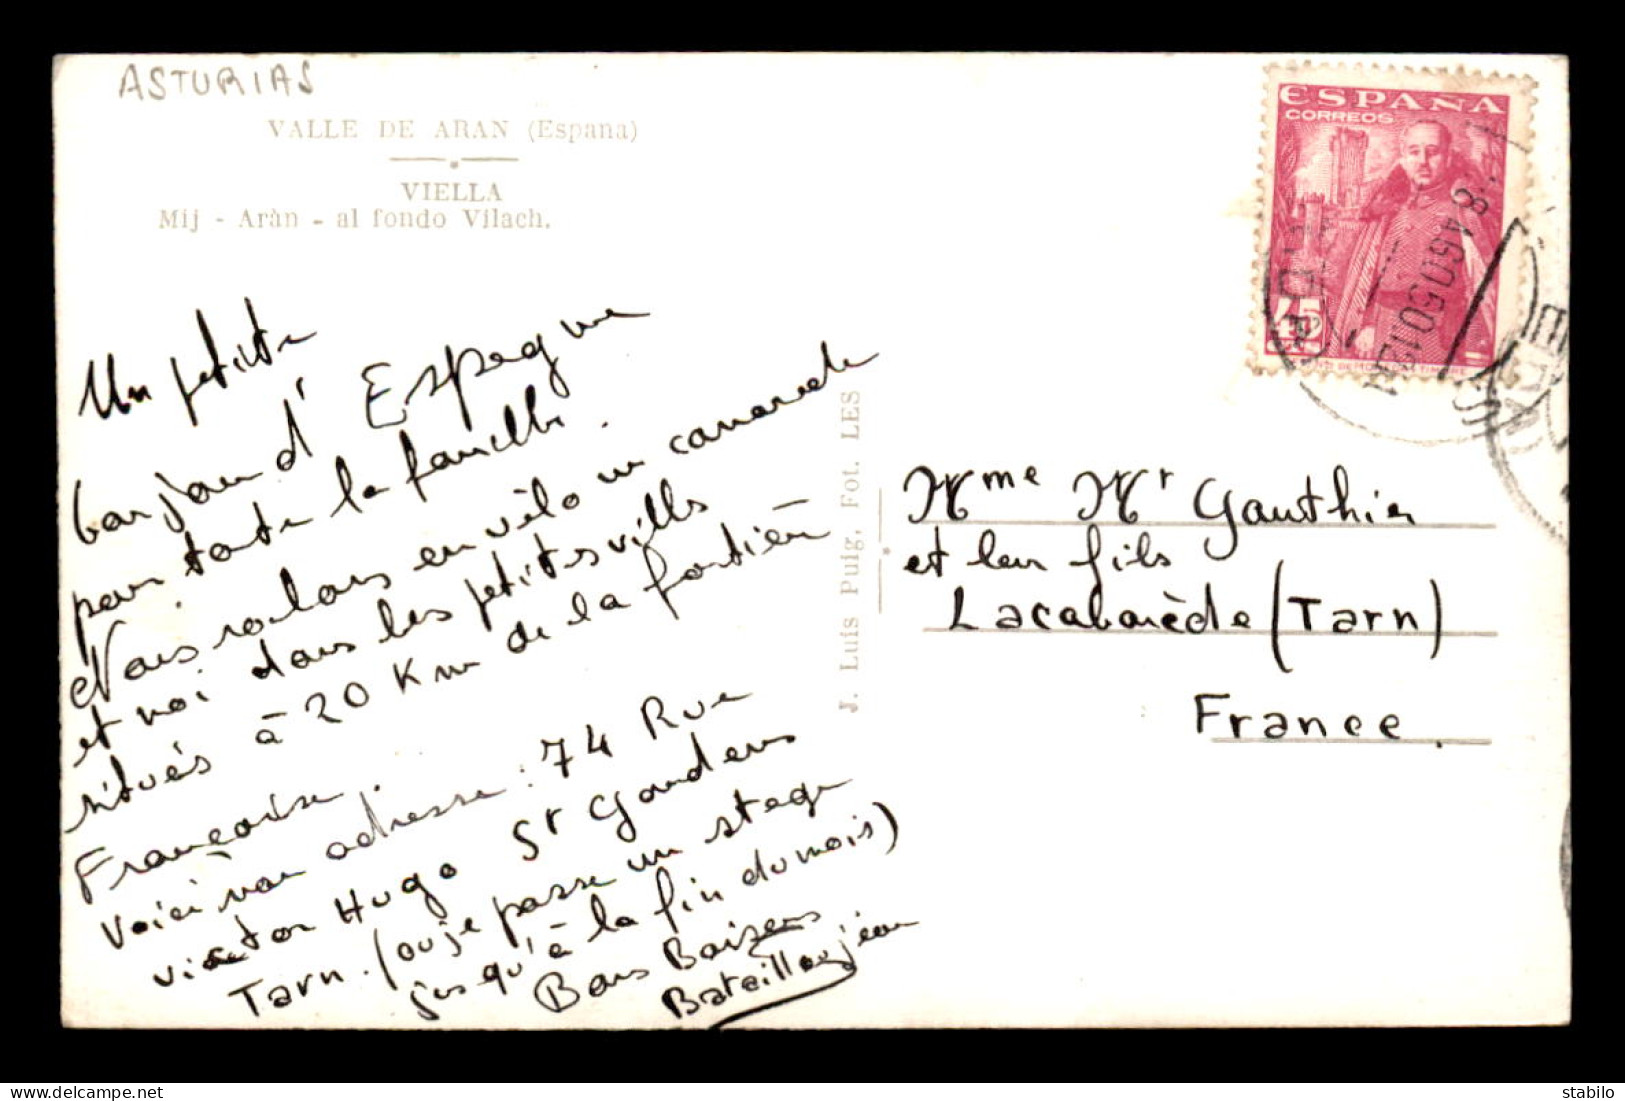 ASTURIAS
VALLE DE ARAN (Espana)
VIELLA
Mij - Aràn - al fondo Vilach.
ESPAÑA
CORREOS
45
8 AGO 50
Un petite
bonjour d'Espagne
pour toute la famille.
Nous roulons en vélo un camarade
et moi dans les petites villes
situés à 20 Km de la frontière
Française.
Voici mon adresse : 74 Rue
victor Hugo St Gaudens
Tarn. (ou je passe un stage
jusqu'à la fin du mois)
Bons Baisers
Bataillou jean
J. Luis Puig, Fot. LES
Mme Mr Gauthier
et leur fils
Lacabarède (Tarn)
France.
stabilo